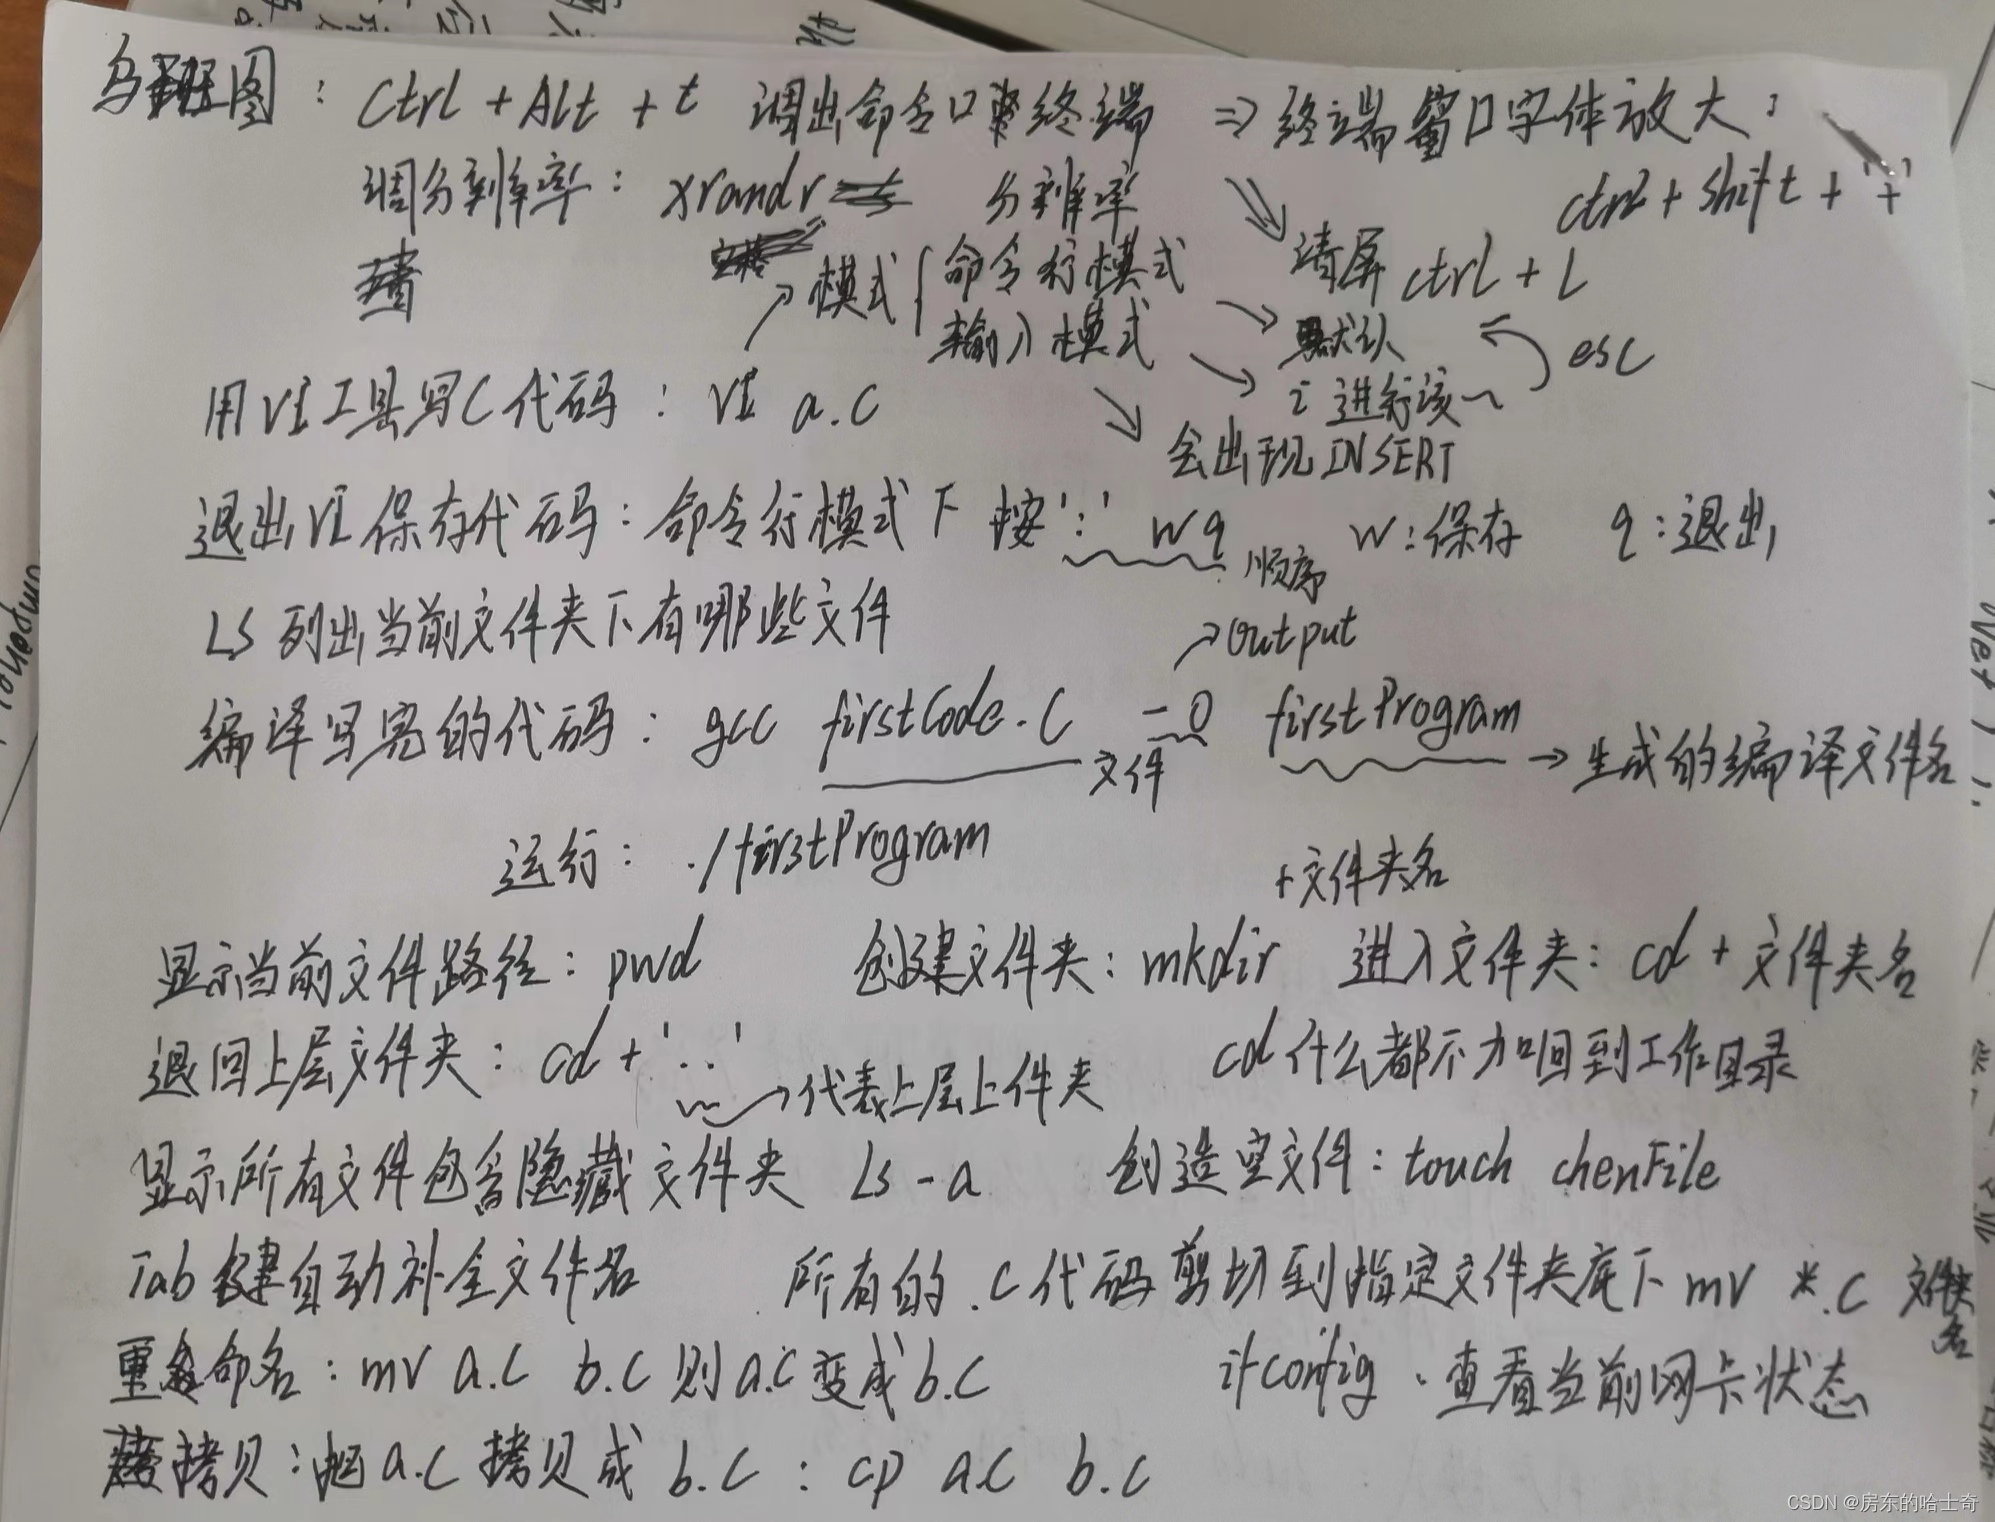 乌班图： Ctrl + Alt + t 调出命令口 终端 => 终端窗口字体放大：
ctrl + shift + '+'
调分辨率： xrandr 分辨率
清屏 ctrl + L
模式 { 命令行模式 → 默认
输入模式 → i 进行该~ esc
会出现INSERT
用VI工具写C代码： VI a.c
退出VI保存代码：命令行模式下 按':' wq 顺序 w:保存 q:退出
LS 列出当前文件夹下有哪些文件
→ output
编译写完的代码： gcc firstCode.C -o firstProgram → 生成的编译文件名
文件
运行： ./firstProgram
+文件夹名
显示当前文件路径：pwd 创建文件夹：mkdir 进入文件夹：cd + 文件夹名
退回上层文件夹：cd + '..' → 代表上层上件夹 cd什么都不加回到工作目录
显示所有文件包含隐藏文件夹 Ls -a 创造空文件：touch chenFile
Tab键自动补全文件名 所有的.c代码剪切到指定文件夹底下 mv *.c 文件夹名
重命名：mv a.c b.c 则a.c变成b.c ifconfig . 查看当前网卡状态
拷贝：把a.c拷贝成 b.c : cp a.c b.c
CSDN @房东的哈士奇